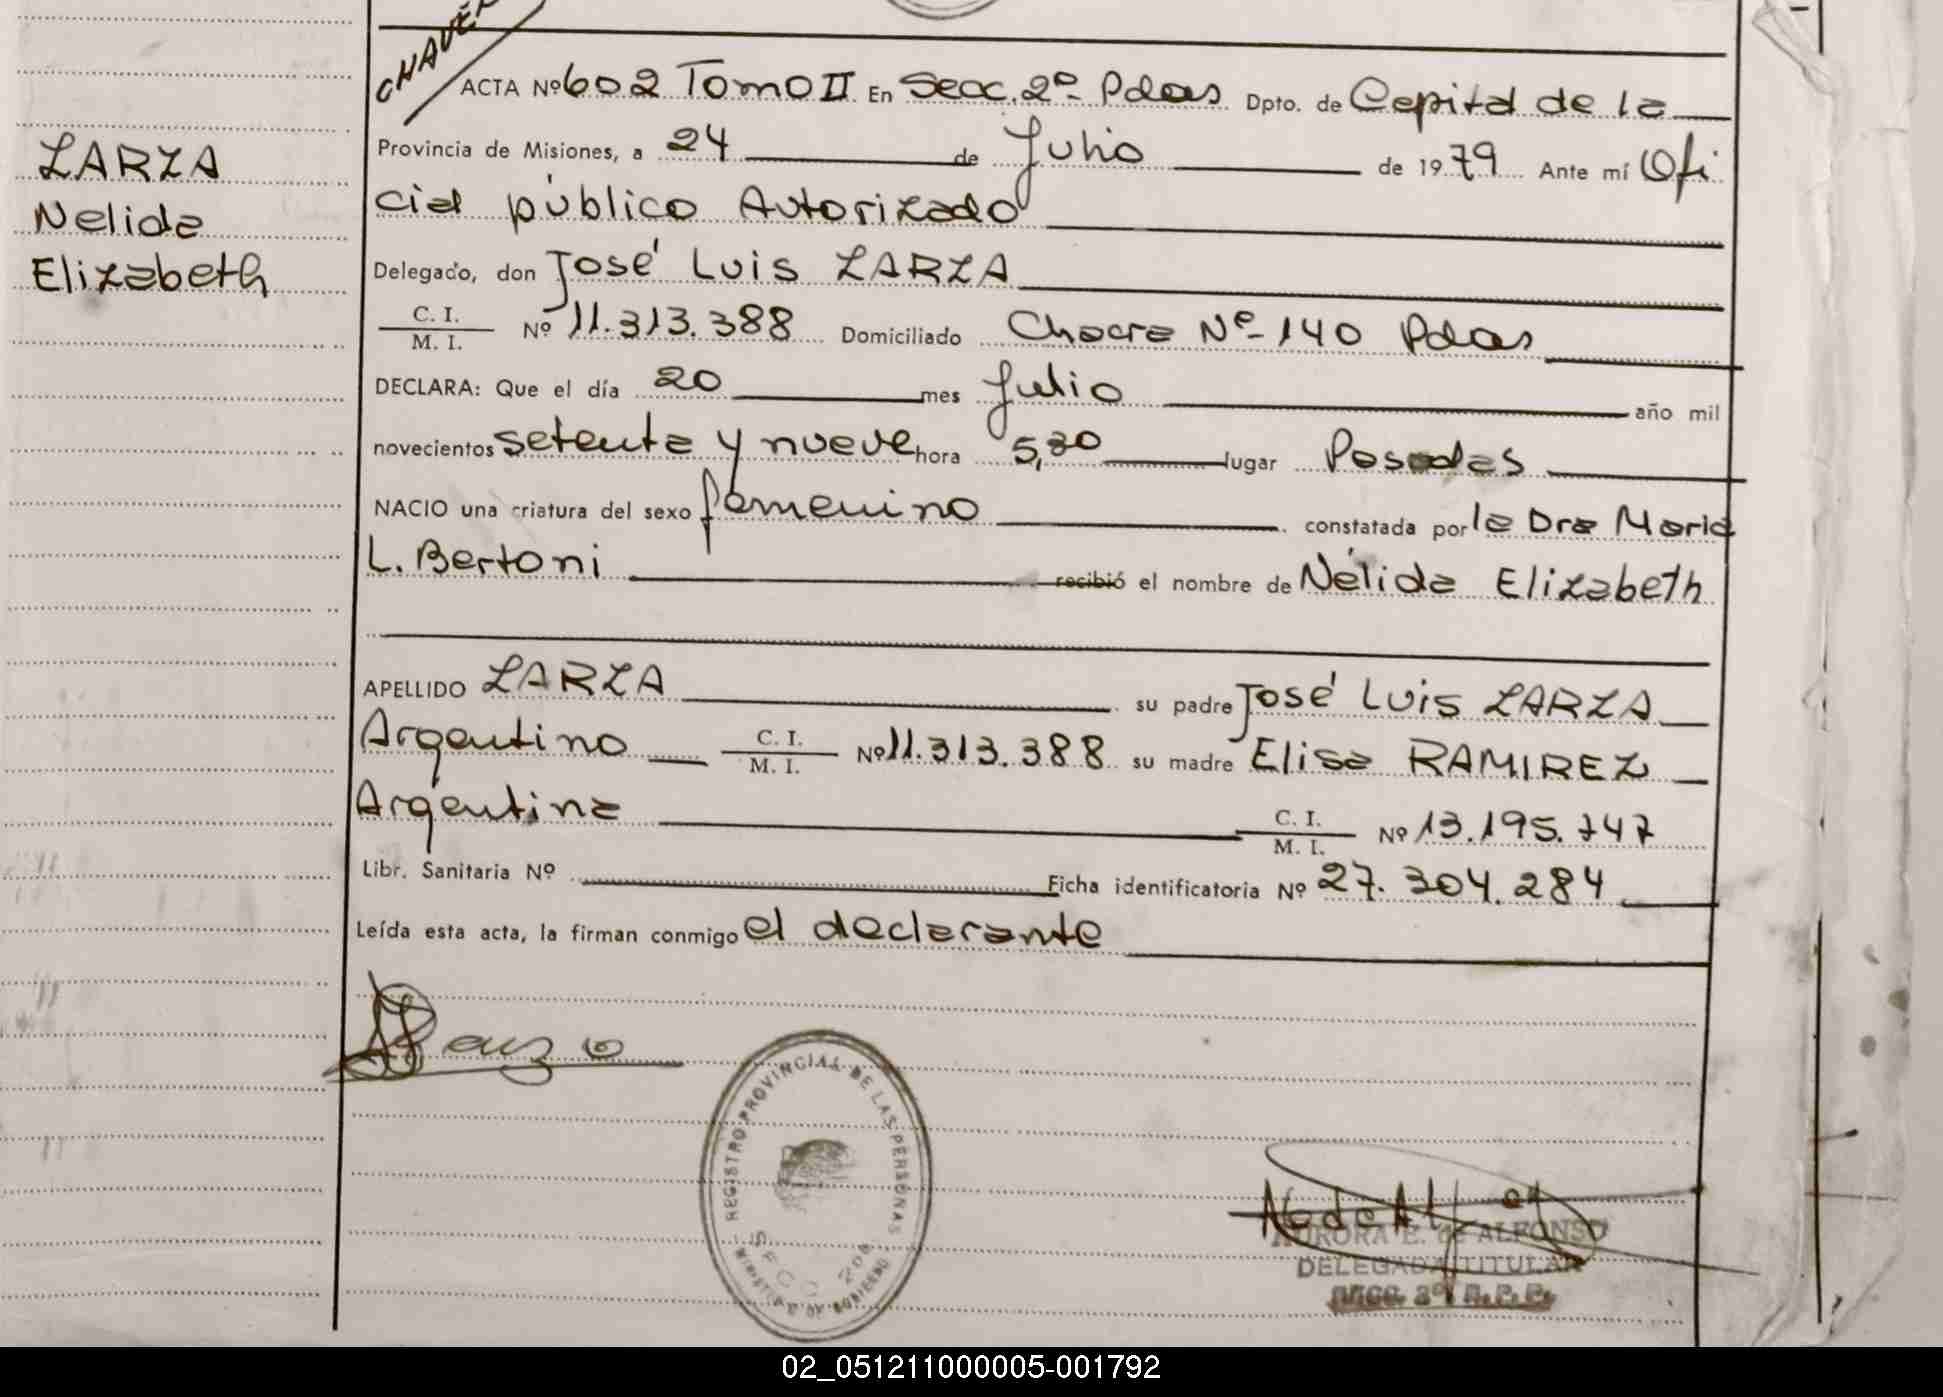 CHAVE
ACTA Nº 602 Tomo II En Secc. 2º Pdas Dpto. de Capital de la
Provincia de Misiones, a 24 de Julio de 1979 Ante mí Ofi
cial público Autorizado
ZARZA
Nelida
Elizabeth
Delegado, don José Luis ZARZA
C. I.
M. I. Nº 11.313.388 Domiciliado Chacra Nº 140 Pdas
DECLARA: Que el día 20 mes Julio año mil
novecientos setenta y nueve hora 5,30 lugar Posadas
NACIO una criatura del sexo femenino constatada por la Dra Maria
L. Bertoni recibió el nombre de Nélida Elizabeth
APELLIDO ZARZA su padre José Luis ZARZA
Argentino C. I.
M. I. Nº 11.313.388 su madre Elisa RAMIREZ
Argentina C. I.
M. I. Nº 13.195.747
Libr. Sanitaria Nº Ficha identificatoria Nº 27.304.284
Leída esta acta, la firman conmigo el declarante
REGISTRO PROVINCIAL DE LAS PERSONAS
SECC 2da
MINISTERIO DE GOBIERNO
AURORA E. de ALFONSO
DELEGADA TITULAR
SECC. 2º R.P.P.
02_051211000005-001792